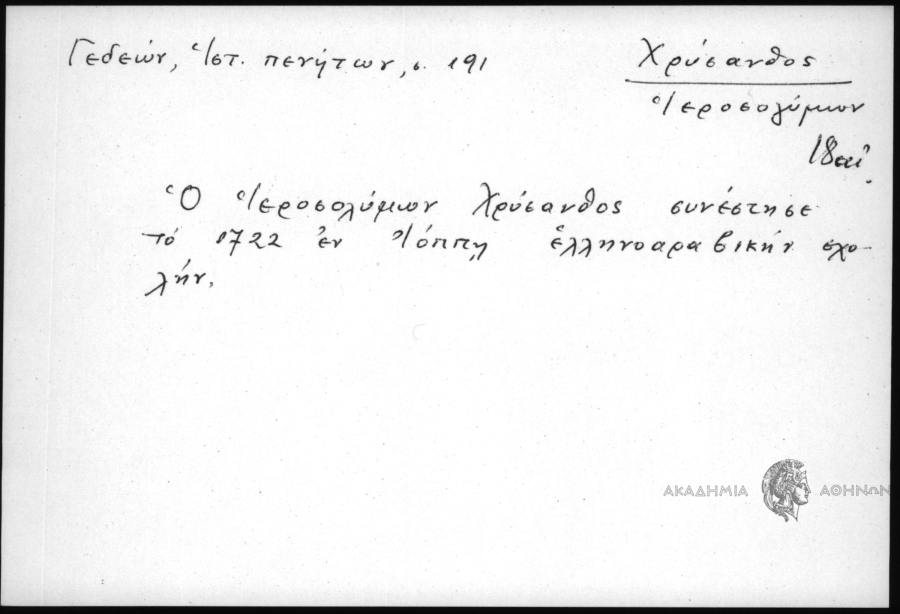 Γεδεών, Ἱστ. πενήτων, σ. 191
Χρύσανθος
Ἱεροσολύμων
18 αἰ.
Ὁ Ἱεροσολύμων Χρύσανθος συνέστησε
τό 1722 ἐν Ἰόππῃ ἑλληνοαραβικήν σχο-
λήν.
ΑΚΑΔΗΜΙΑ ΑΘΗΝΩΝ